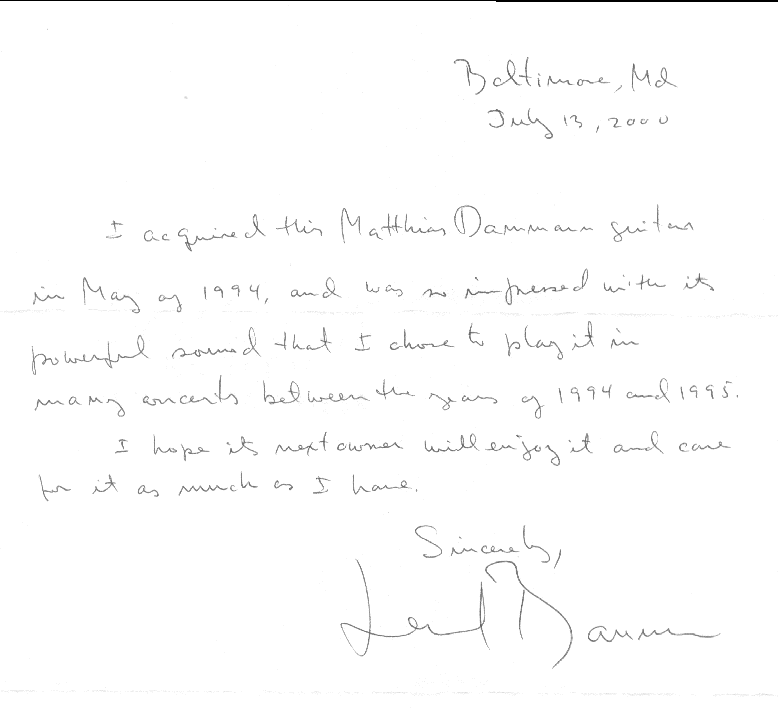 Baltimore, Md
July 13, 2000
I acquired this Matthias Dammann guitar
in May of 1994, and was so impressed with its
powerful sound that I chose to play it in
many concerts between the years of 1994 and 1995.
I hope its next owner will enjoy it and care
for it as much as I have.
Sincerely,